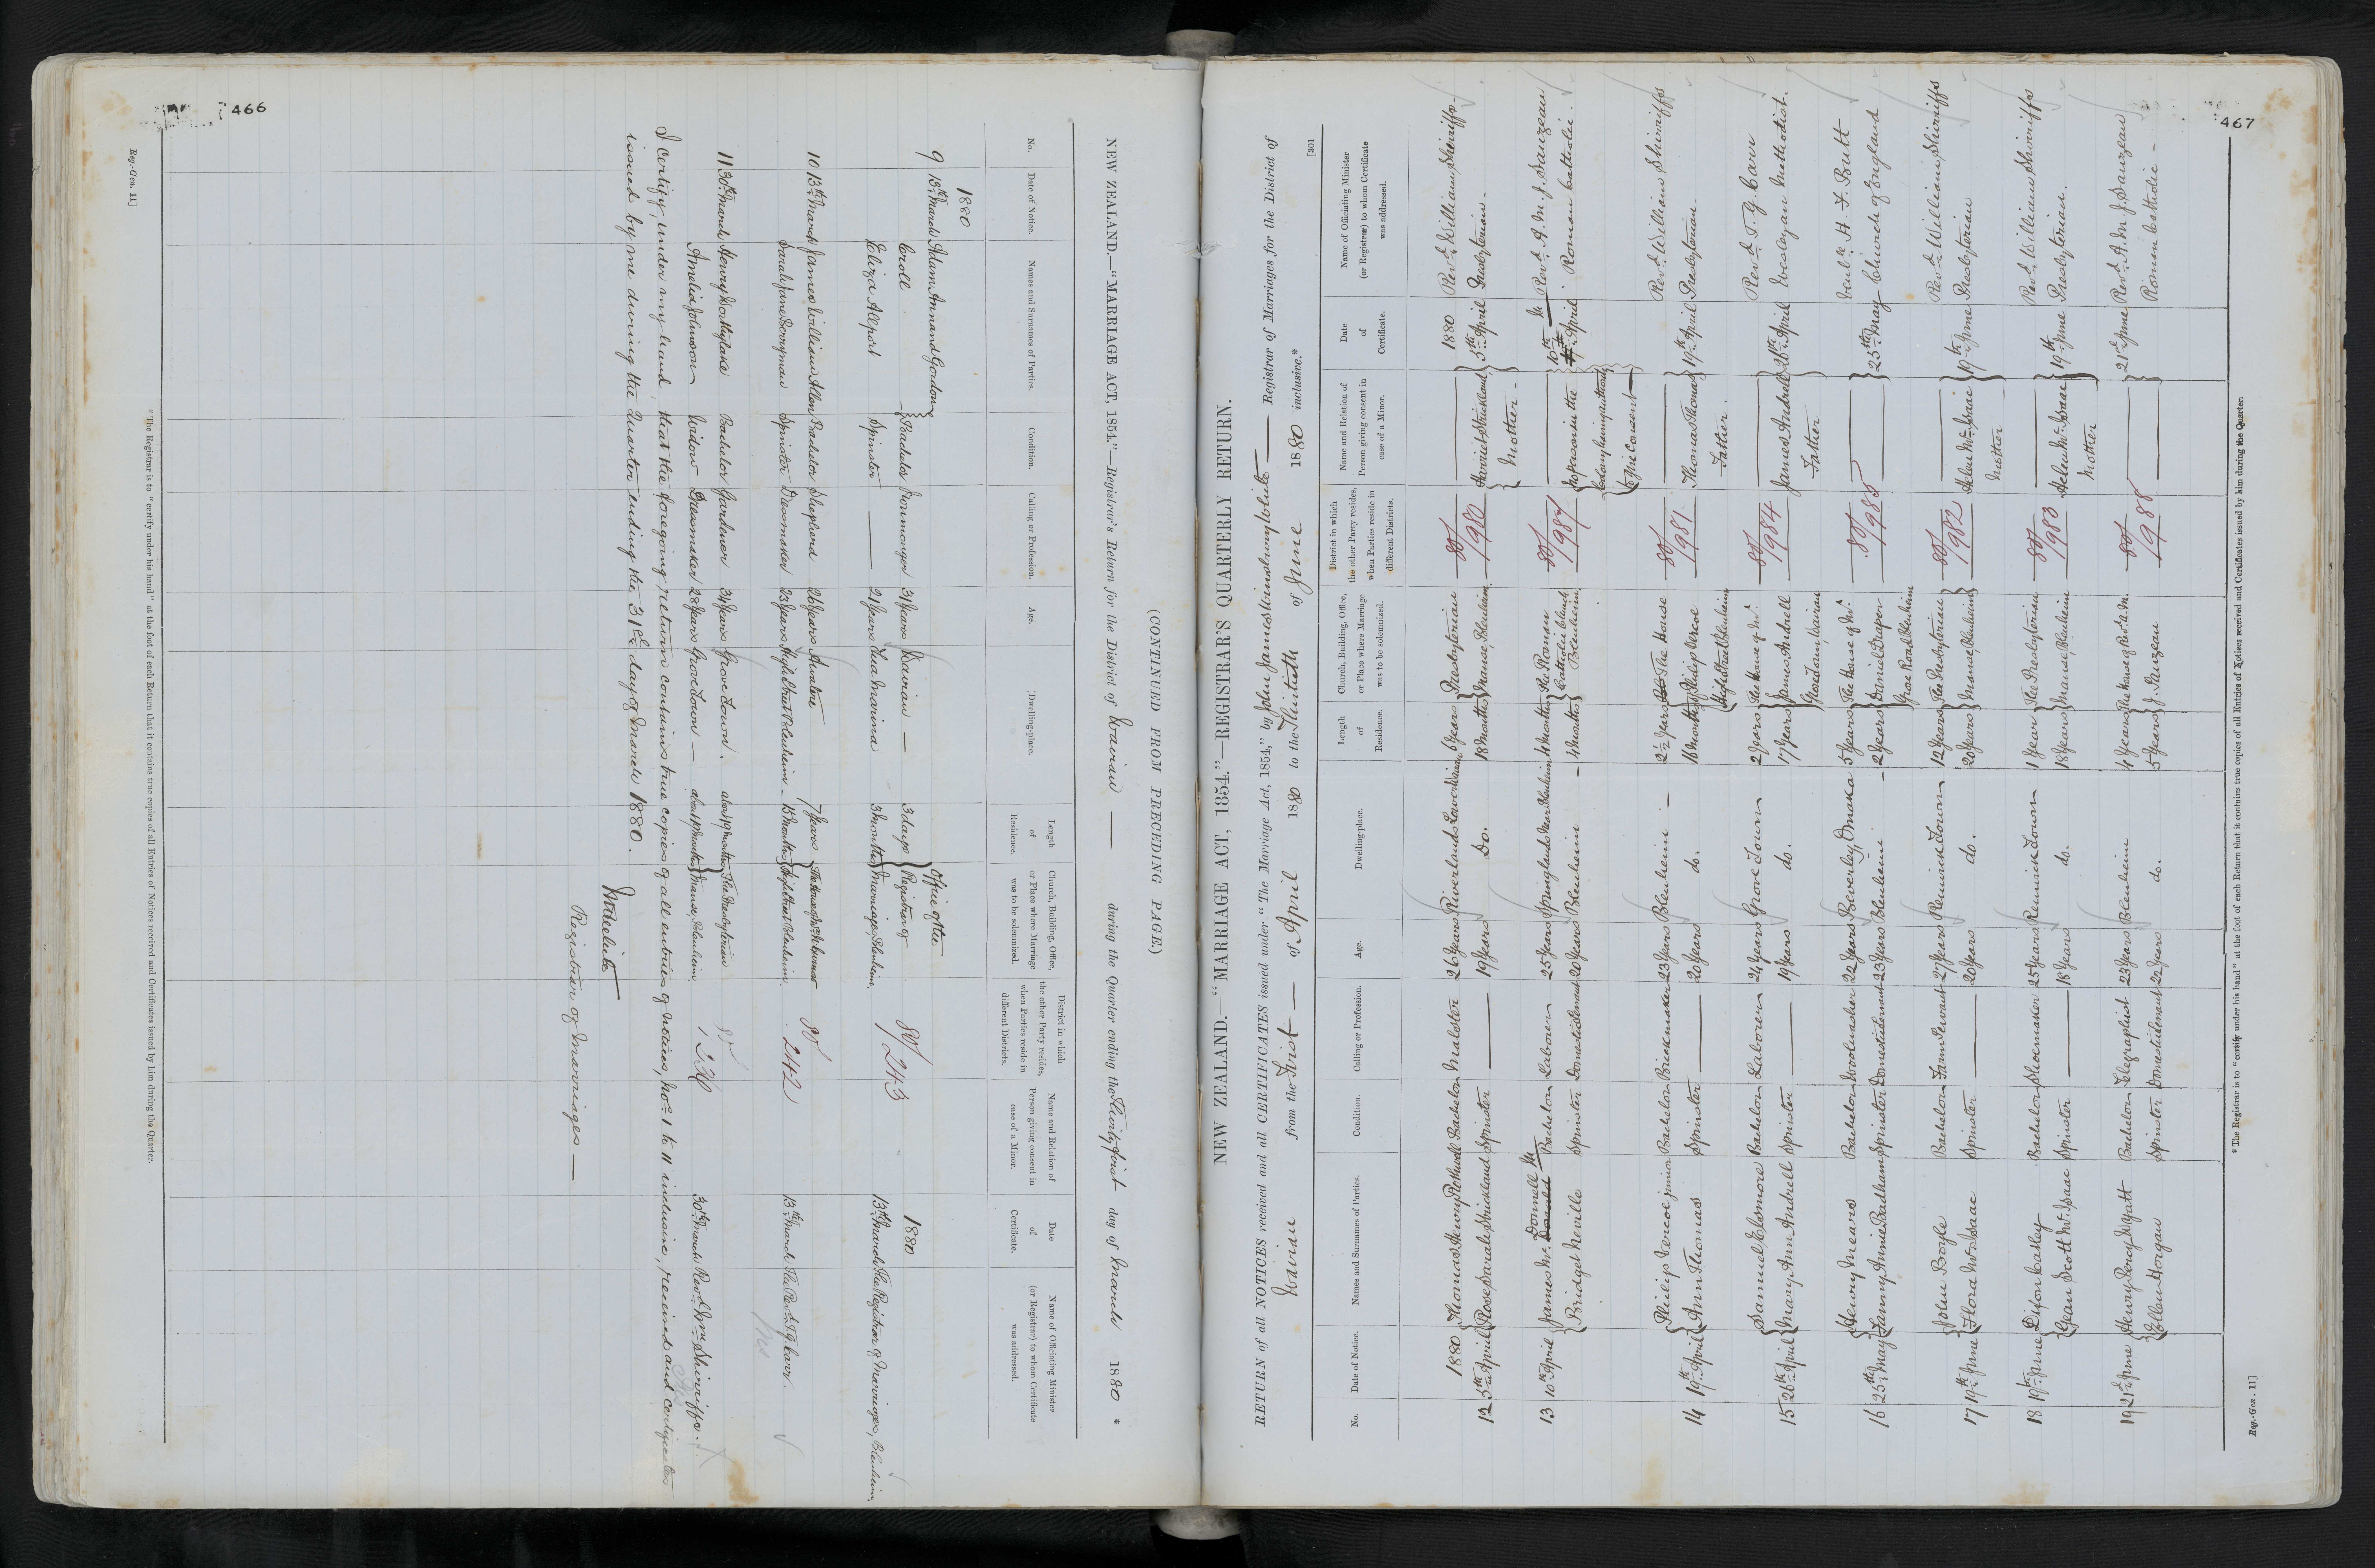 466
(CONTINUED FROM PRECEDING PAGE.)
NEW ZEALAND.—"MARRIAGE ACT, 1854."—Registrar's Return for the District of Wairau — during the Quarter ending the Thirty first day of March 1880 *
No.
Date of Notice.
Names and Surnames of Parties.
Condition.
Calling or Profession.
Age.
Dwelling-place.
Length of Residence.
Church, Building, Office, or Place where Marriage was to be solemnized.
District in which the other Party resides, when Parties reside in different Districts.
Name and Relation of Person giving consent in case of a Minor.
Date of Certificate.
Name of Officiating Minister (or Registrar) to whom Certificate was addressed.
1880 Office of the 1880
9 13th March Adam Annand Gordon
Croll Bachelor Ironmonger 31 Years Wairau — 3 days Registrar of 80/243
Eliza Allport Spinster — 21 Years Tua Marina 3 months Marriages, Blenheim. 13th March The Registrar of Marriages, Blenheim.
10 13th March James William Allen Bachelor Shepherd 26 Years Awatere 7 Years 80/242
Sarah Jane Berryman Spinster Dressmaker 23 Years High Street Blenheim - 15 months High Street Blenheim. 13th March The Revd T. G. Carr.
11 30th March Henry Worthylake Bachelor Gardener 34 Years Grove Town. about 9 months The Presbyterian
Amelia Johnson Widow Dressmaker 28 Years Grove Town — about 10 months Manse, Blenheim. 30th March Revd Wm Shirriffs.
I certify, under my hand, that the foregoing return contains true copies of all entries of notices, Nos 1 to 11 inclusive, received and certificates
issued by me during the Quarter ending the 31st day of March 1880.
Registrar of Marriages —
* The Registrar is to "certify under his hand" at the foot of each Return that it contains true copies of all Entries of Notices received and Certificates issued by him during the Quarter.
Reg.-Gen. 11]
467
[301
NEW ZEALAND.—"MARRIAGE ACT, 1854."—REGISTRAR'S QUARTERLY RETURN.
RETURN of all NOTICES received and all CERTIFICATES issued under "The Marriage Act, 1854," by John — Registrar of Marriages for the District of
Wairau from the First — of April 1880 to the Thirtieth of June 1880 inclusive.*
No.
Date of Notice.
Names and Surnames of Parties.
Condition.
Calling or Profession.
Age.
Dwelling-place.
Length of Residence.
Church, Building, Office, or Place where Marriage was to be solemnized.
District in which the other Party resides, when Parties reside in different Districts.
Name and Relation of Person giving consent in case of a Minor.
Date of Certificate.
Name of Officiating Minister (or Registrar) to whom Certificate was addressed.
1880 Thomas Henry Rothwell Bachelor Malster 26 Years Riverlands Lower Wairau 6 Years Presbyterian 80/980 — 1880 Revd William Shirriffs.
12 5th April Rose Sarah Strickland Spinster — 19 Years Do. 18 months Manse, Blenheim. Harriet Strickland Mother. 5th April Presbyterian.
13 10th April James Mc Donald Donnell Bachelor Laborer 25 Years Springlands near Blenheim 4 months The Roman 80/987 — 10th April Revd A. M. J. Sauzeau
Bridget Neville Spinster Domestic Servant 20 Years Blenheim — 4 months Catholic Church Blenheim No person in the Colony having authority to give Consent — Roman Catholic.
Philip Vercoe junior Bachelor Brickmaker 23 Years Blenheim — 2½ Years The House 80/981 — Revd William Shirriffs
14 19th April Ann Thomas Spinster — 20 Years do. 16 months Philip Vercoe High Street Blenheim Thomas Thomas Father. 19th April Presbyterian.
Samuel Elsmore Bachelor Laborer 24 Years Grove Town 2 Years The House of Mr 80/984 — Revd T. G. Carr
15 26th April Mary Ann Andrell Spinster — 19 Years do. 17 Years James Andrell Grove Town, Wairau James Andrell Father 26th April Wesleyan Methodist.
Henry Means Bachelor Woolwasher 22 Years Beverley, Omaka 5 Years The House of Mr 80/985 — Venble H. F. Butt
16 25th May Fanny Annie Badham Spinster Domestic Servant 23 Years Blenheim — 2 Years Daniel Draper Grove Road Blenheim — 25th May Church of England
John Boyle Bachelor Farm Servant 27 Years Renwick Town 12 Years The Presbyterian 80/982 — Revd William Shirriffs
17 19th June Flora McIsaac Spinster — 20 Years do. 20 Years Manse, Blenheim Helen McIsaac Mother 19th June Presbyterian
Dixon Oakley Bachelor Shoemaker 25 Years Renwick Town 1 Year The Presbyterian 80/983 — Revd William Shirriffs
18 19th June Jean Scott McIsaac Spinster — 18 Years do. 18 Years Manse, Blenheim Helen McIsaac Mother 19th June Presbyterian.
19 21st June Henry Percy Wyatt Bachelor Telegraphist 23 Years Blenheim 4 Years The House of Revd A. M. 80/988 — 21st June Revd A. M. J. Sauzeau
Ellen Horgan Spinster Domestic Servant 22 Years do. 5 Years J. Sauzeau — Roman Catholic —
* The Registrar is to "certify under his hand" at the foot of each Return that it contains true copies of all Entries of Notices received and Certificates issued by him during the Quarter.
Reg.-Gen. 11]